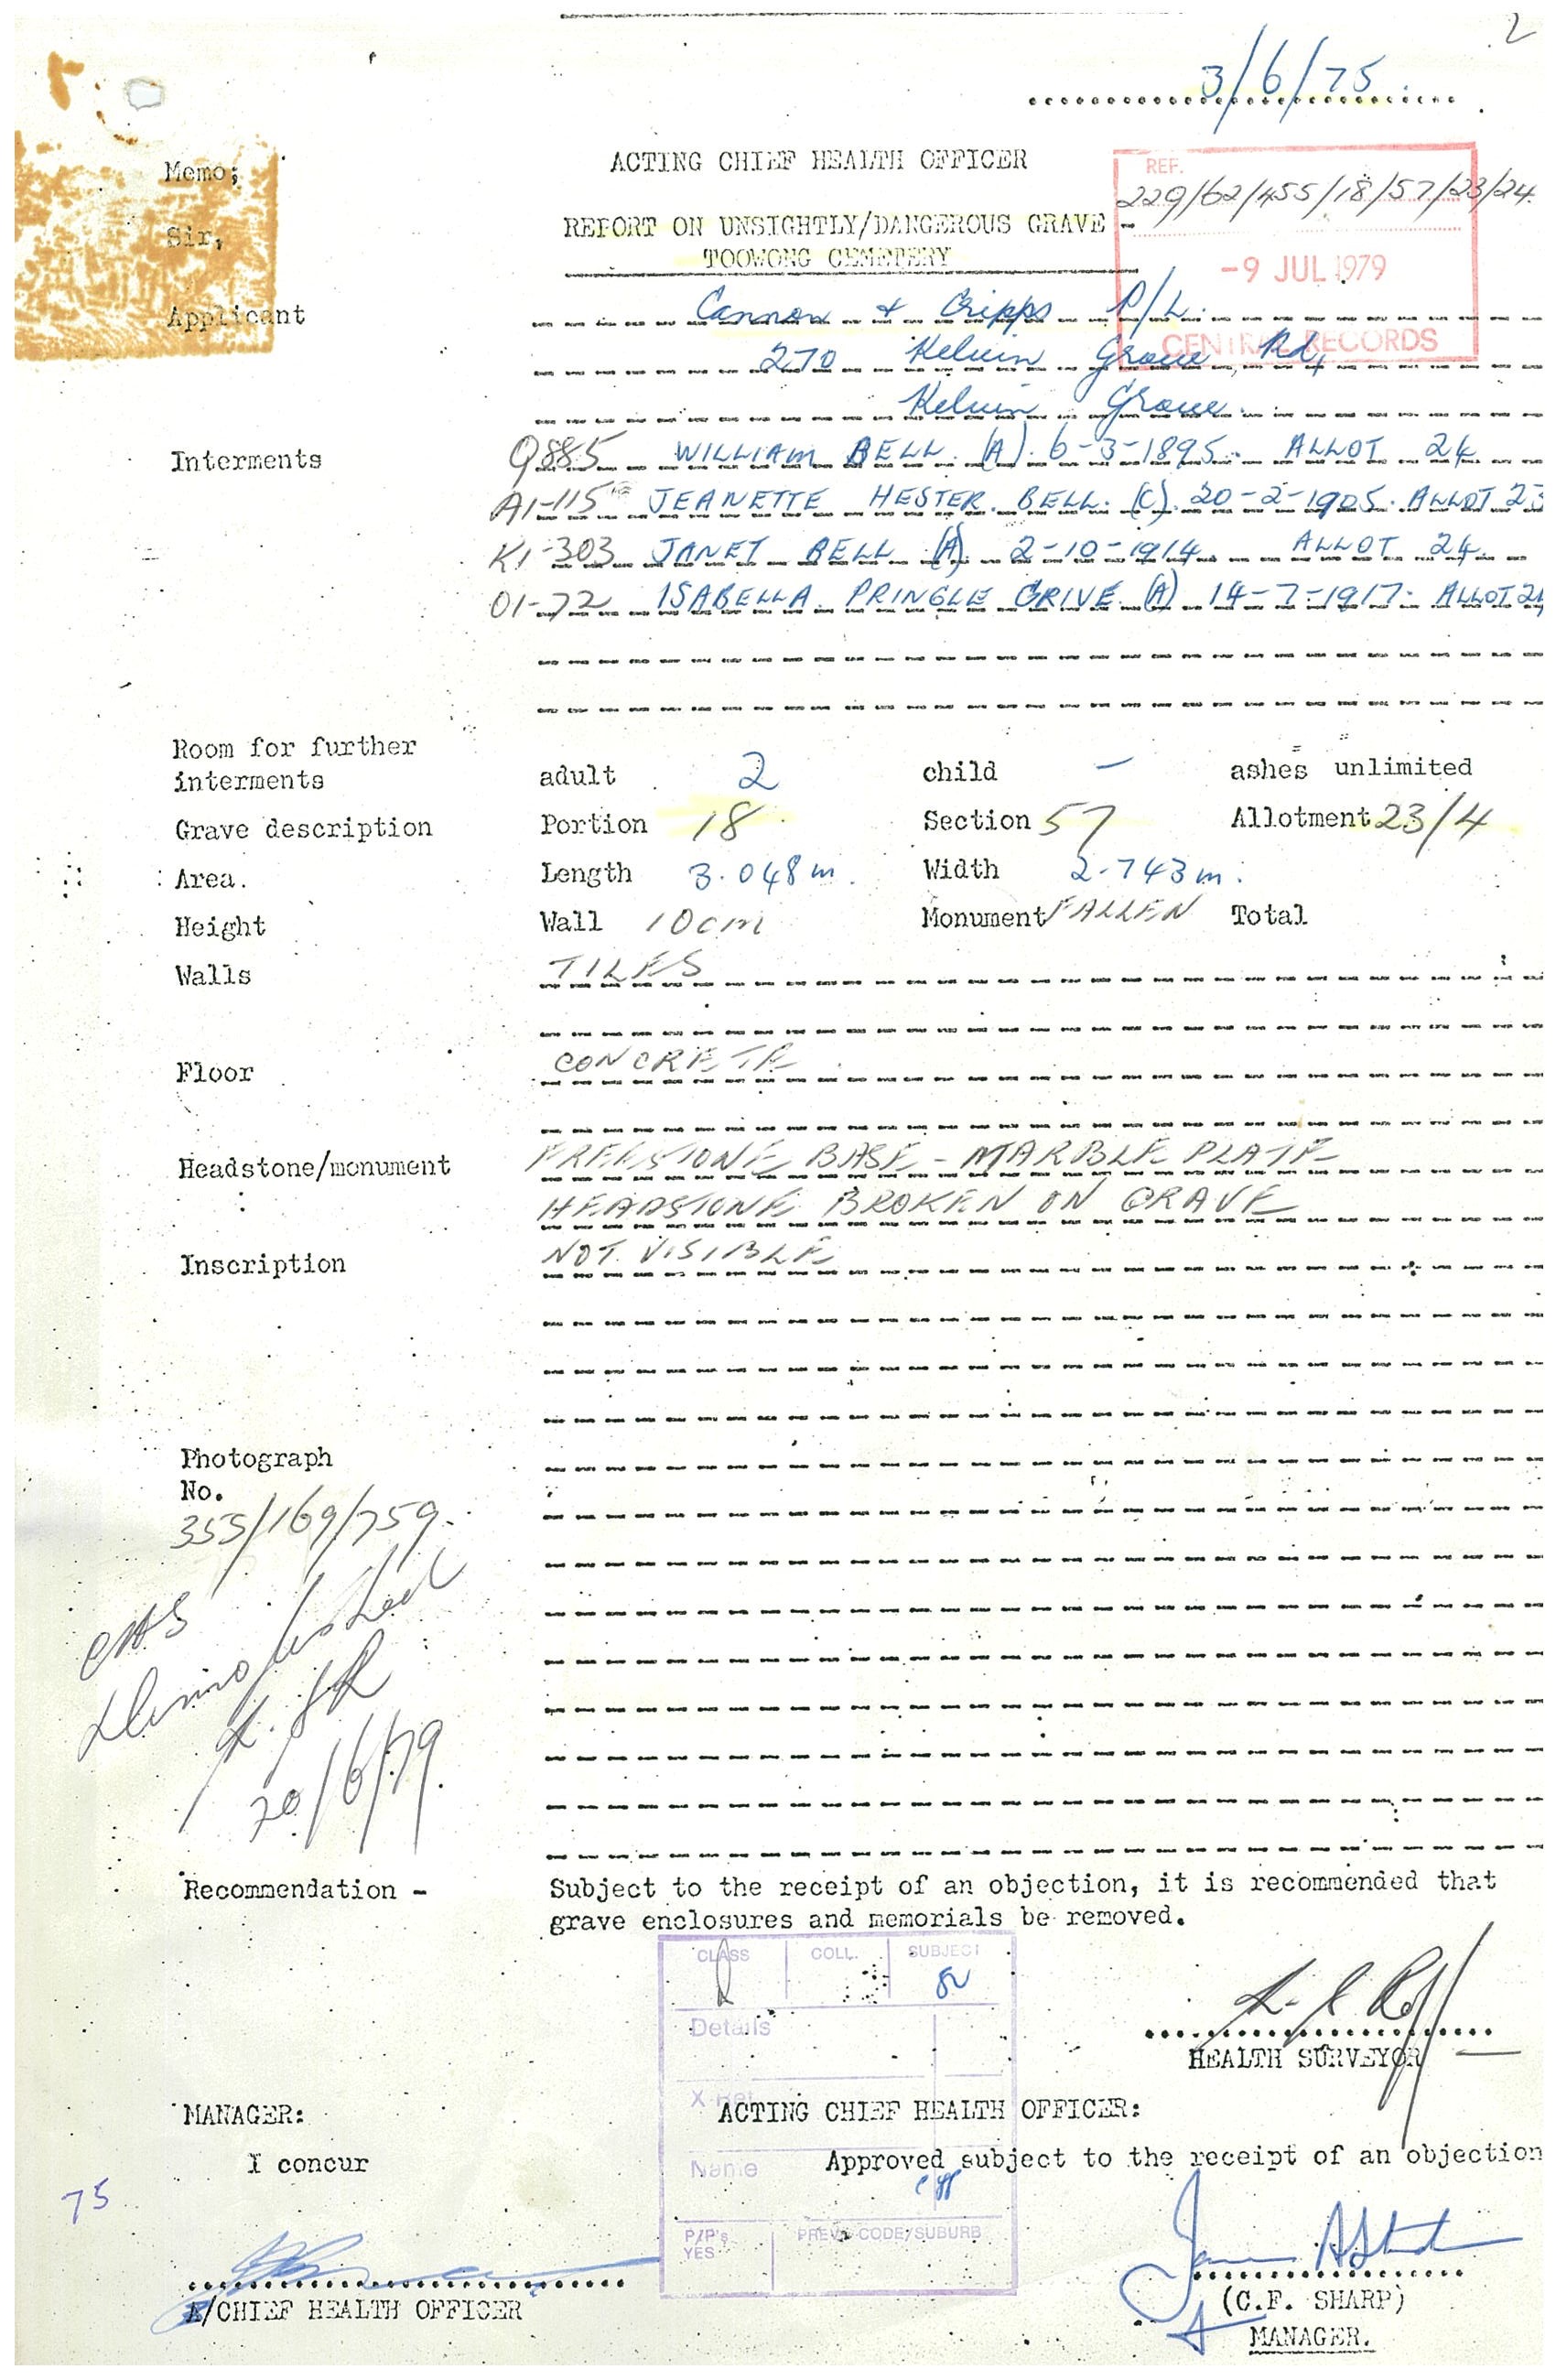 2
3/6/75
Memo; ACTING CHIEF HEALTH OFFICER
REF.
229/62/455/18/57/23/24.
Sir, REPORT ON UNSIGHTLY/DANGEROUS GRAVE -
TOOWONG CEMETERY
-9 JUL 1979
CENTRAL RECORDS
Applicant Cannon & Cripps P/L.
270 Kelvin Grove Rd,
Kelvin Grove.
Interments Q885 WILLIAM BELL (A). 6-3-1895. ALLOT 24
A1-115 JEANETTE HESTER BELL. (C). 20-2-1905. ALLOT 23
K1-303 JANET BELL (A) 2-10-1914. ALLOT 24.
O1-72 ISABELLA PRINGLE GRIVE (A) 14-7-1917. ALLOT 24
Room for further
interments adult 2 child - ashes unlimited
Grave description Portion 18 Section 57 Allotment 23/4
Area. Length 3.048m. Width 2.743m.
Height Wall 10cm Monument FALLEN Total
Walls TILES
Floor CONCRETE
Headstone/monument FREESTONE BASE - MARBLE PLATE
HEADSTONE BROKEN ON GRAVE
Inscription NOT VISIBLE
Photograph
No.
355/169/759.
20/6/79.
Recommendation - Subject to the receipt of an objection, it is recommended that
grave enclosures and memorials be removed.
CLASS COLL. SUBJECT
Details
HEALTH SURVEYOR
X Ref
MANAGER: ACTING CHIEF HEALTH OFFICER:
I concur Approved subject to the receipt of an objection
Name
75
P/P's PREV. CODE/SUBURB
YES
A/CHIEF HEALTH OFFICER (C.F. SHARP)
MANAGER.